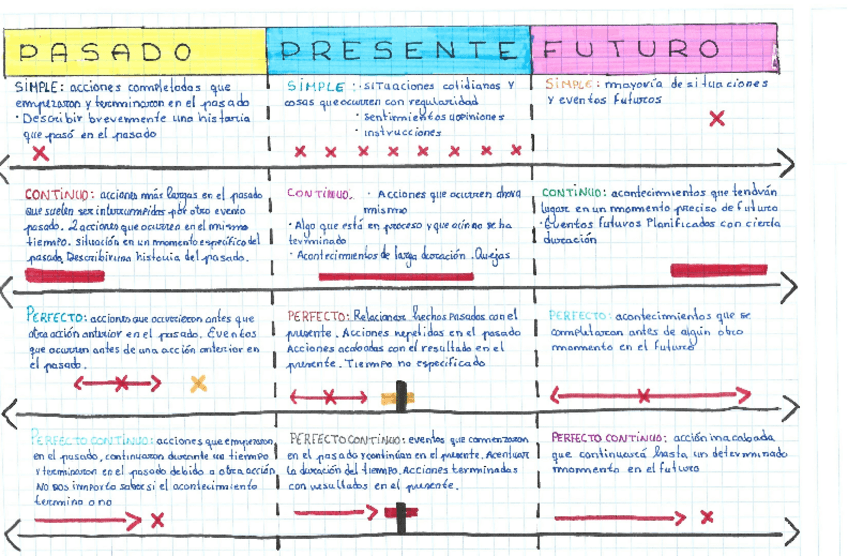 PASADO
PRESENTE
FUTURO
SIMPLE: acciones completadas que
empezaron y terminaron en el pasado
· Describir brevemente una historia
que pasó en el pasado
SIMPLE: · situaciones cotidianas y
cosas que ocurren con regularidad
· sentimientos u opiniones
· instrucciones
SIMPLE: mayoría de situaciones
y eventos futuros
CONTINUO: acciones más largas en el pasado
que suelen ser interrumpidas por otro evento
pasado. 2 acciones que ocurren en el mismo
tiempo. Situación en un momento específico del
pasado, Describir una historia del pasado.
CONTINUO. · Acciones que ocurren ahora
mismo
· Algo que está en proceso y que aún no se ha
terminado
· Acontecimientos de larga duración. Quejas
CONTINUO: acontecimientos que tendrán
lugar en un momento preciso de futuro
· Eventos futuros Planificados con cierta
duración
PERFECTO: acciones que ocurrieron antes que
otra acción anterior en el pasado. Eventos
que ocurren antes de una acción anterior en
el pasado.
PERFECTO: Relacionar hechos pasados con el
presente. Acciones repetidas en el pasado
Acciones acabadas con el resultado en el
presente. Tiempo no especificado
PERFECTO: acontecimientos que se
completaron antes de algún otro
momento en el futuro
PERFECTO CONTINUO: acciones que empezaron
en el pasado, continuaron durante un tiempo
y terminaron en el pasado debido a otra acción
No nos importa saber si el acontecimiento
termino o no
PERFECTO CONTINUO: eventos que comenzaron
en el pasado y continúan en el presente. Acentuar
la duración del tiempo. Acciones terminadas
con resultados en el presente.
PERFECTO CONTINUO: acción inacabada
que continuará hasta un determinado
momento en el futuro